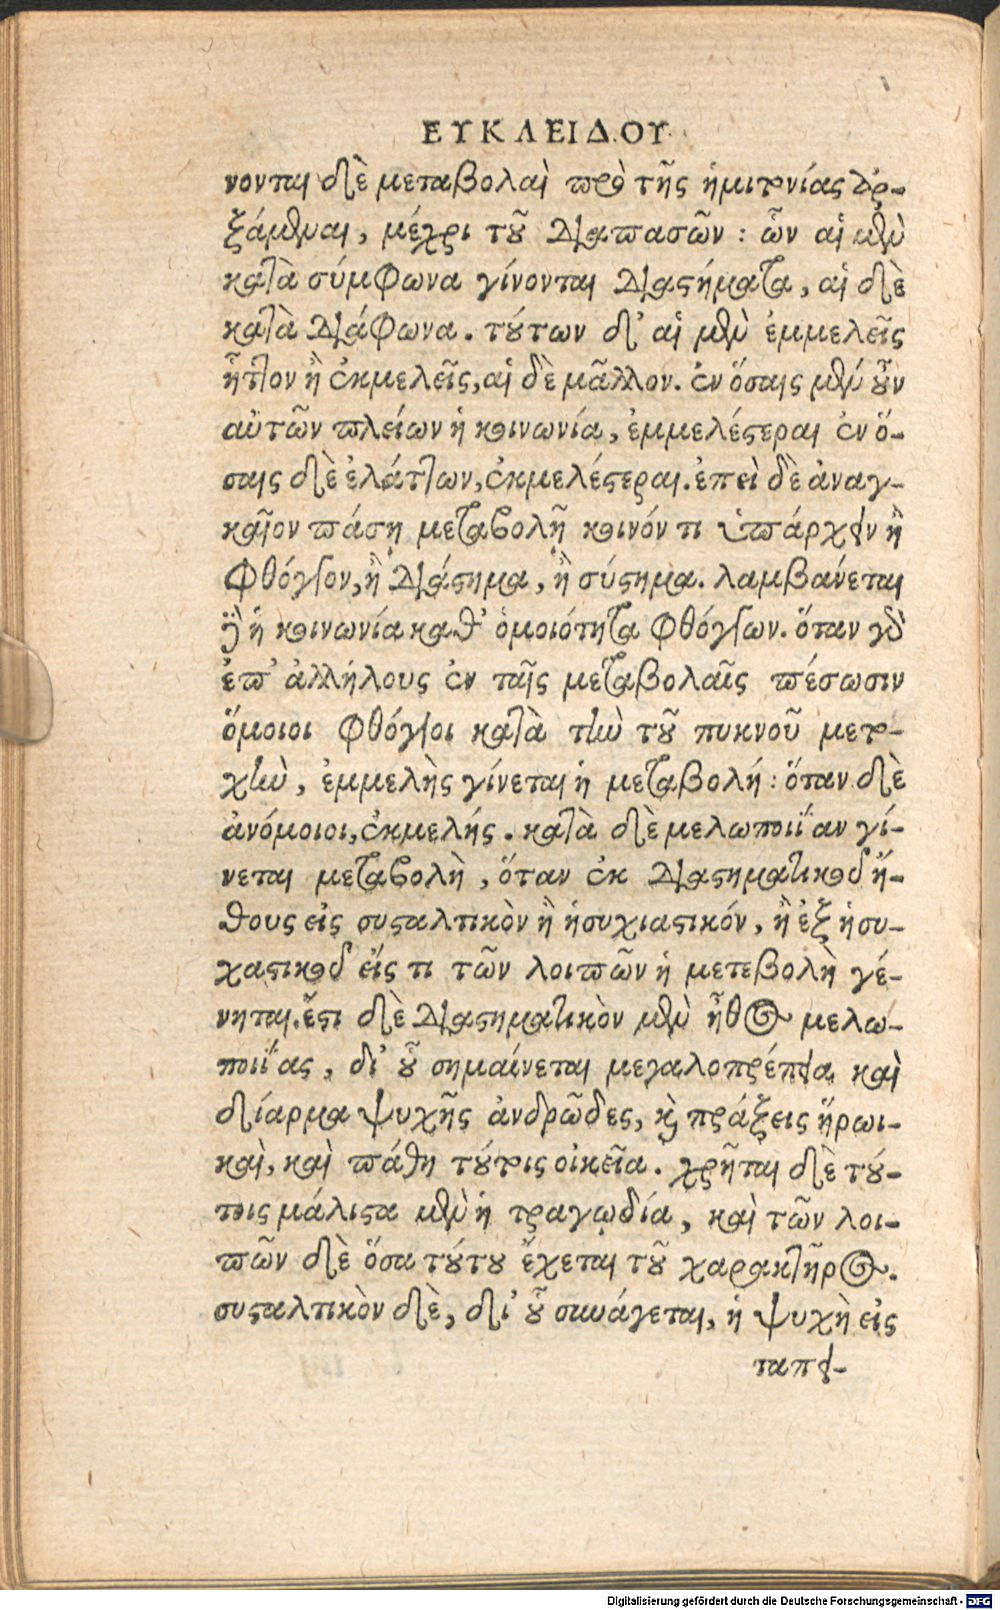 ΕΥΚΛΕΙΔΟΥ
νονται δὲ μεταβολαὶ ἀπὸ τῆς ἡμιτονίας ἀρ-
ξάμεναι, μέχρι τοῦ διαπασῶν: ὧν αἱ μὲν
κατὰ σύμφωνα γίνονται διαστήματα, αἱ δὲ
κατὰ διάφωνα. τούτων δ' αἱ μὲν ἐμμελεῖς
ἧττον ἢ ἐκμελεῖς, αἱ δὲ μᾶλλον. ἐν ὅσαις μὲν οὖν
αὐτῶν πλείων ἡ κοινωνία, ἐμμελέστεραι ἐν ὅ-
σαις δὲ ἐλάττων, ἐκμελέστεραι. ἐπεὶ δὲ ἀναγ-
καῖον πάσῃ μεταβολῇ κοινόν τι ὑπάρχειν ἢ
φθόγγον, ἢ διάστημα, ἢ σύστημα. λαμβάνεται
δὲ ἡ κοινωνία καθ' ὁμοιότητα φθόγγων. ὅταν γὰρ
ἐπ' ἀλλήλους ἐν ταῖς μεταβολαῖς πέσωσιν
ὅμοιοι φθόγγοι κατὰ τὴν τοῦ πυκνοῦ μετο-
χὴν, ἐμμελὴς γίνεται ἡ μεταβολή: ὅταν δὲ
ἀνόμοιοι, ἐκμελής. κατὰ δὲ μελωποιΐαν γί-
νεται μεταβολὴ, ὅταν ἐκ διαστηματικοῦ ἤ-
θους εἰς συσταλτικὸν ἢ ἡσυχιαστικόν, ἢ ἐξ ἡσυ-
χαστικοῦ εἴς τι τῶν λοιπῶν ἡ μετεβολὴ γέ-
νηται. ἔστι δὲ διαστηματικὸν μὲν ἦθος μελω-
ποιΐας, δι' οὗ σημαίνεται μεγαλοπρέπεια καὶ
δίαρμα ψυχῆς ἀνδρῶδες, καὶ πράξεις ἥρωι-
καὶ, καὶ πάθη τούτοις οἰκεῖα. χρῆται δὲ τού-
τοις μάλιστα μὲν ἡ τραγῳδία, καὶ τῶν λοι-
πῶν δὲ ὅσα τούτου ἔχεται τοῦ χαρακτῆρος.
συσταλτικὸν δὲ, δι' οὗ συνάγεται, ἡ ψυχὴ εἰς
ταπει-
Digitalisierung gefördert durch die Deutsche Forschungsgemeinschaft - DFG